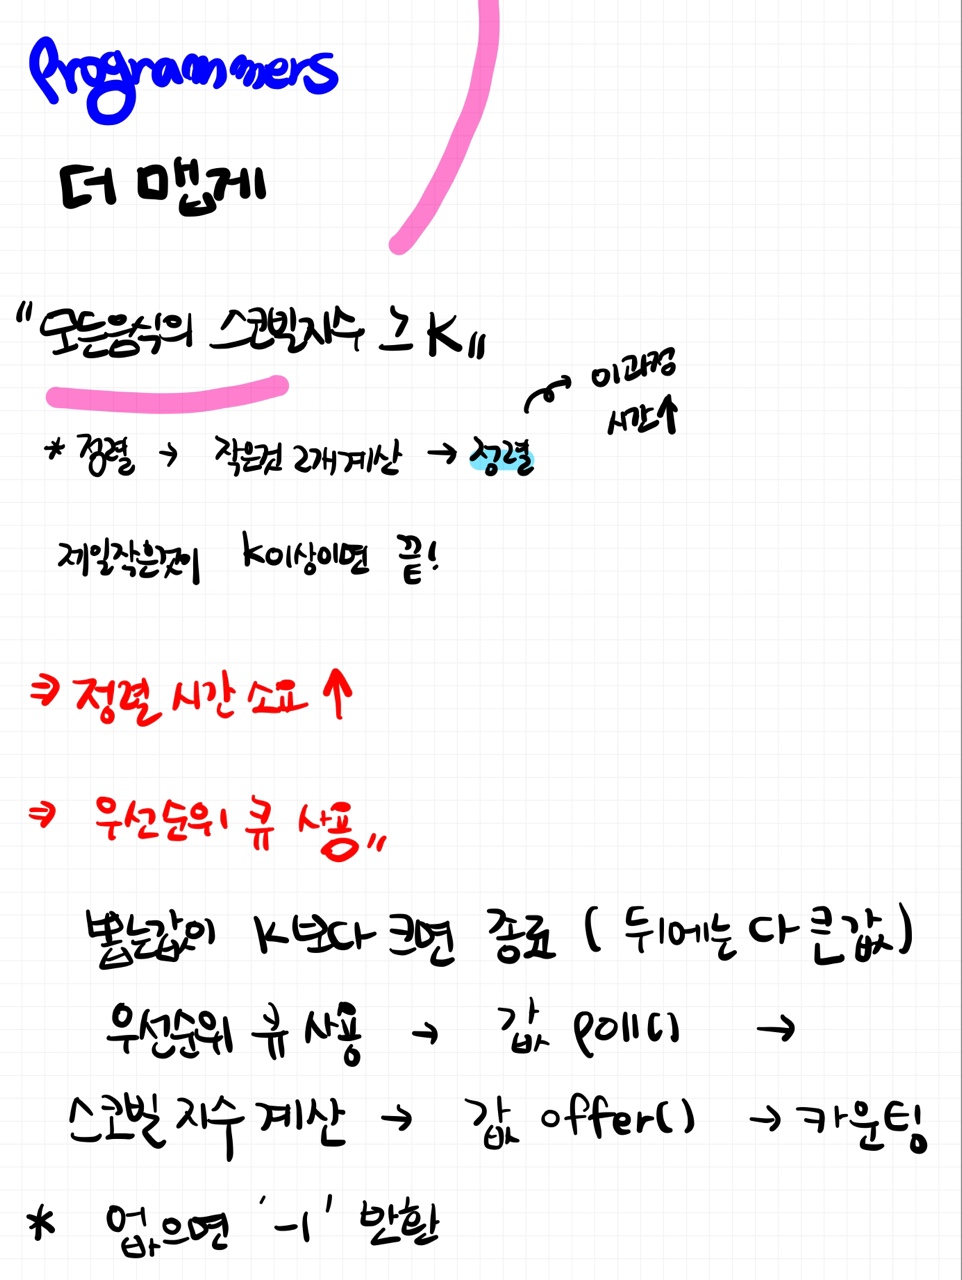 Programmers
더 맵게
"모든음식의 스코빌지수 ≥ K"
이과정
시간↑
* 정렬 → 작은것 2개계산 → 정렬
제일작은것이 K이상이면 끝!
⇒ 정렬 시간 소요 ↑
⇒ 우선순위 큐 사용"
뽑는값이 K보다 크면 종료 ( 뒤에는 다 큰값)
우선순위 큐 사용 → 값 poll() →
스코빌 지수 계산 → 값 offer() → 카운팅
* 없으면 '-1' 반환